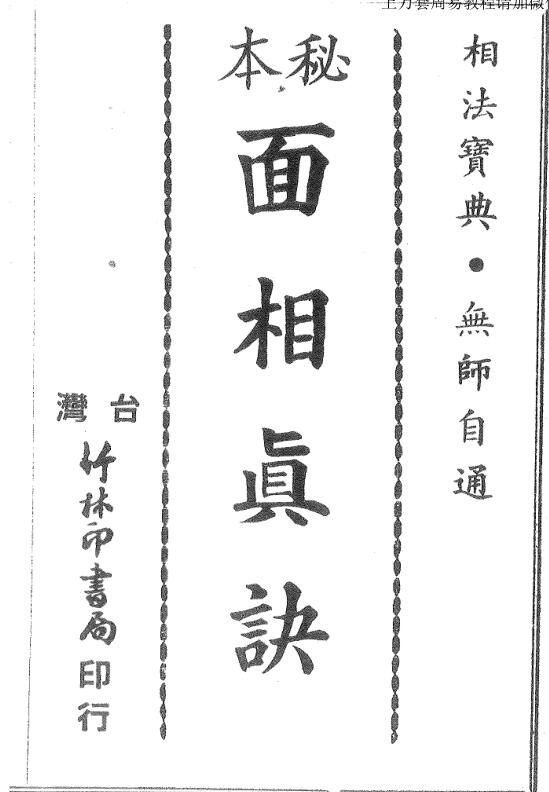 上万套周易教程请加微
相法寶典•無師自通
秘本
面相眞訣
台灣
竹林印書局
印行